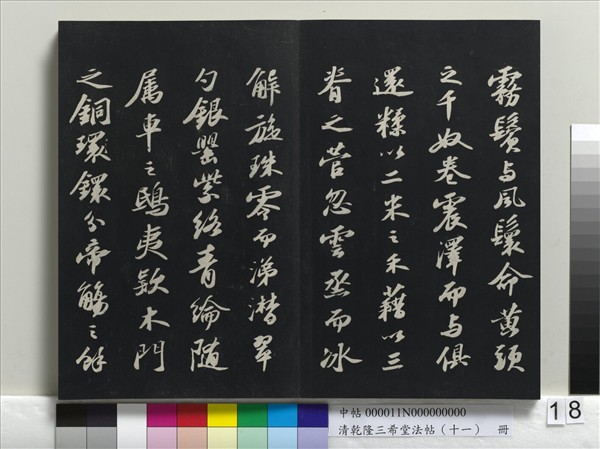 霧鬢与風鬟命黄頭
之千奴卷震澤而与俱
還糅以二米之禾藉以三
脊之菅忽雲烝而冰
解旋珠零而涕潸翠
勺銀罌紫絡青綸随
属車之鴟夷欵木門
之銅環鐶分帝觴之餘
中帖 000011N000000000
清乾隆三希堂法帖（十一） 冊
18